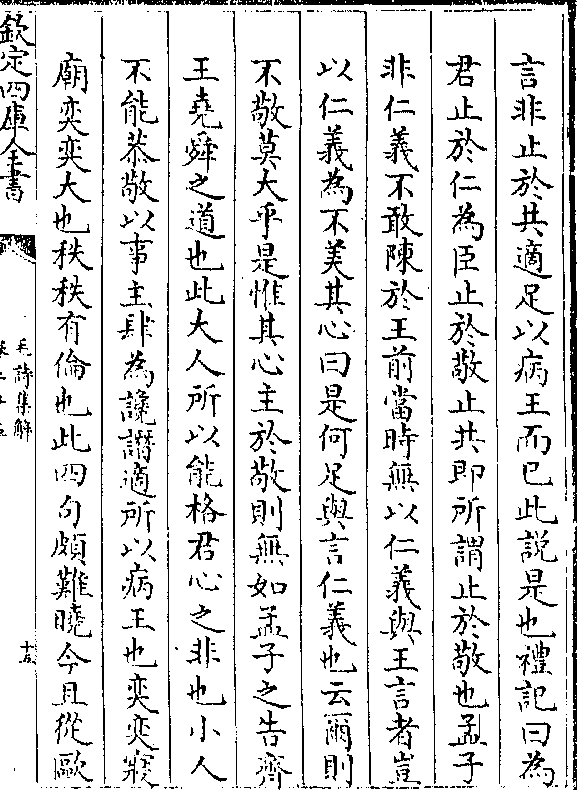 言非止於共適足以病王而已此説是也禮記曰為
君止於仁為臣止於敬止共即所謂止於敬也孟子
非仁義不敢陳於王前當時無以仁義與王言者豈
以仁義為不美其心曰是何足與言仁義也云爾則
不敬莫大乎是惟其心主於敬則無如孟子之告齊
王堯舜之道也此大人所以能格君心之非也小人
不能恭敬以事主肆為讒譖適所以病王也奕奕寢
廟奕奕大也秩秩有倫也此四句頗難曉今且從歐
欽定四庫全書
毛詩集解
十五